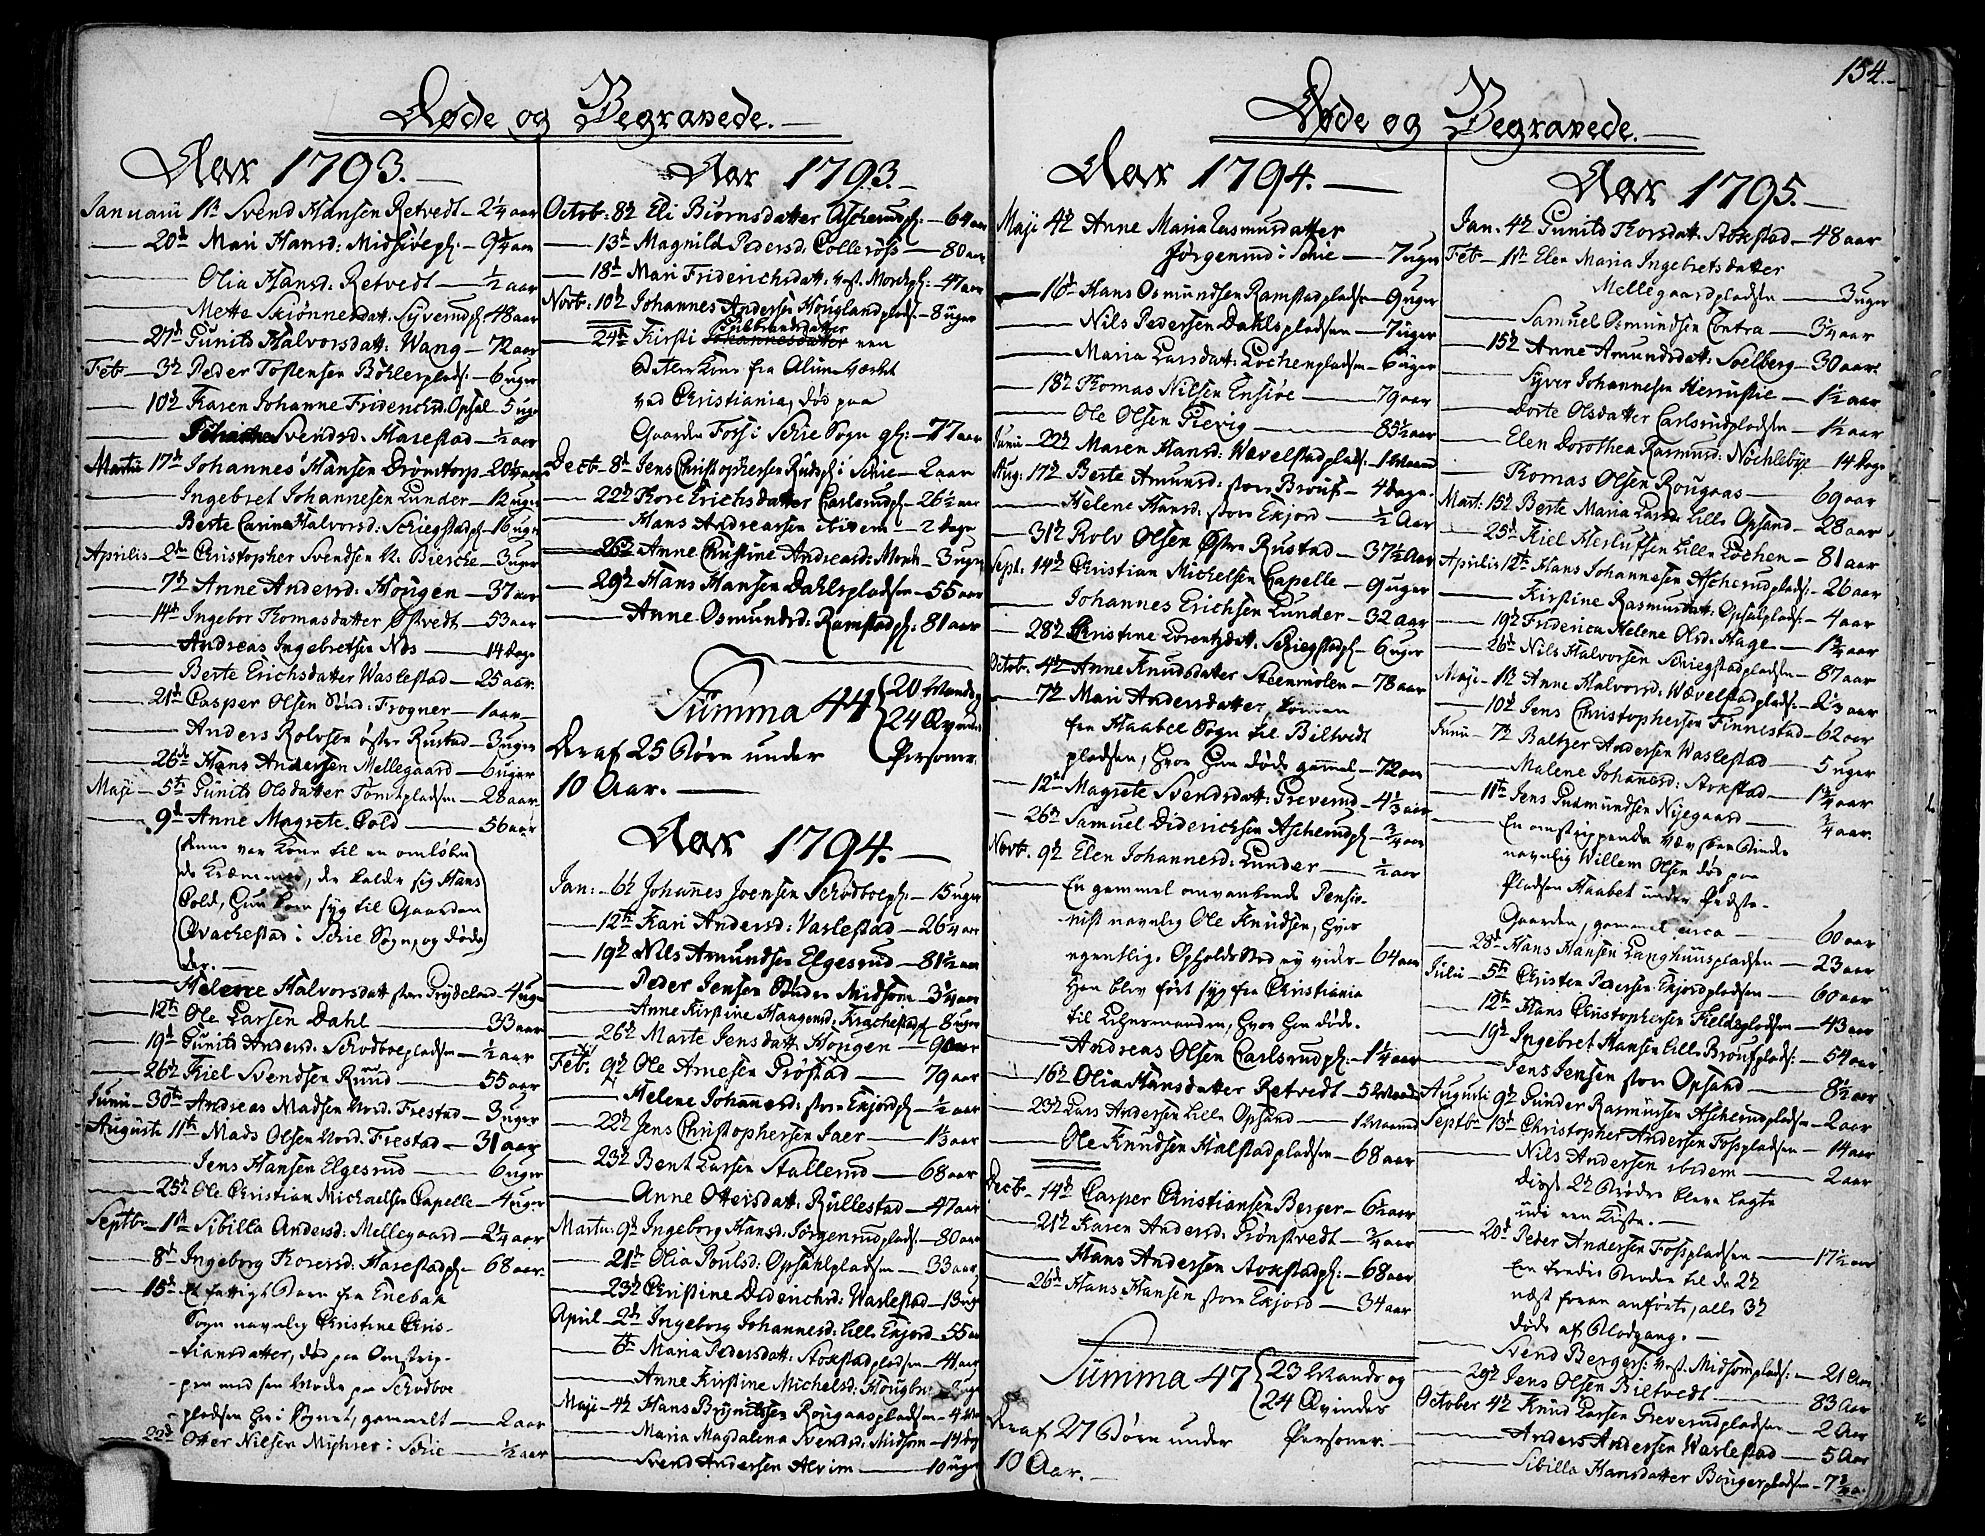 154.
Døde og Begravede.
Aar 1793.
Januarii 11te Svend Hansen Retvedt 2 1/4 aar
20de Mari Hansd: 9 3/4 aar
Olia Hansd: Retvedt 1/2 aar
Mette 48 aar
27de Gunild Halvorsdatt: Wang 72 aar
Feb 3de Peder Tostensen Böhlerplads: 6 uger
10de Karen Johanne Friderichsd: Opsal 5 uger
Svendsd: Harestad 1/2 aar
Martii 17de Johannes Hansen Drönstorp 20 1/2 aar
Ingebret Johannesen Lunder 12 uger
Berte Carine Halvorsd: 16 uger
Aprilis 2den Christopher Svendsen N. Biercke 3 uger
7de Anne Andersd: Hougen 37 aar
14de Ingebor Thomasdatter Østvedt 53 aar
Andreas Ingebretsen Nds 14 dage
Berte Erichsdatter Waslestad 25 aar.
21de Casper Olsen Frogner 1 aar
Anders Rolvsen östre Rustad 3 uger
26de Hans Andersen Mellegaard 6 uger
Maji 5te Gunild Olsdatter Tomtpladsen 28 aar
9de Anne Magrete Cold 56 aar
(denne var Kone til en omløben
de Kræmmer, der kalder sig Hans
Cold, hun kom syg til Gaarden
Qvachestad i Schie Sogn, og døde
der.
Helene Halvorsdatt store 4 uger
12te Ole Larsen Dahl 33 aar
19de Gunild Andersd: Schodboepladsen 1/2 aar
26de Kiel Svendsen Ruud 55 aar
Junii 30te Andreas Madsen Nord. Frestad 3 uger
Augusti 11te Mads Olsen Nord. Frestad 31 aar
Jens Hansen Elgesrud 6 uger
25de Ole Christian Michaelsen Capelle 4 uger
Septbr 1ste Sibilla Andersd: Mellegaard 2 1/4 aar
8de Ingeborg Toresd: Harestadpl: 68 aar
15de Et fattigt Barn fra Enebak
Sogn navnlig Christine Chris-
tiansdatter, død paa Omstrip-
pen med sin Moder paa Schodboe
pladsen her i Sognet, gammelt 2 aar
22de Otter Nilsen Myhrer i Schie 1/2 aar
Aar 1793.
Octob: 8de Eli Biørnsdatter Ascherudpl: 64 aar
13de Magnild Pedersd: Collerøss 80 aar
18de Mari Friderichsdatt: vest. Morch pl: 47 aar
Novb: 10de Johannes Andersen Houglandplads: 8 uger
Gulbrandsdatter
24de Kirsti Johannesdatter een
Enkekone fra Alun værket
ved Christiania, død paa
Gaarden Foss i Schie Sogn gl: 77 aar
Decb: 8de Jens Christophersen Rudspl i Schie 2 aar
22de Thore Erichsdatter Carlsrudpl: 26 1/2 aar
Hans Andreasen ibidem 2 dage
26de Anne Christine Andreasd: Morch 3 uger
29de Hans Hansen Dahlspladsen 55 aar
Anne Osmundsd: Ramstadpl: 81 aar
Summa 44 { 20 Mands og
24 Qvinde
Personer.
Deraf 25 Børn under
10 Aar.
Aar 1794.
Jan: 6te Johannes Joensen Schodboepl: 15 uger
12te Kari Andersd: Varlestad 26 1/4 aar
19de Nils Amundsen Elgesrud 81 1/2 aar
Peder Jensen Sönder Midsom 3 1/4 aar
Anne Kirstine Haagensd: Krachestad 8 uger
26de Marte Jensdatt: Hougen 90 aar
Feb: 9de Ole Arnesen Prøstad 79 aar
Helene Johannesd: store Enjordpl 1/2 aar
22de Jens Christophersen Faer 1 1/3 aar
23de Bent Larsen Stallerud 68 aar
Anne Ottersdatt: Rullestad 47 aar
Martii 9de Ingeborg Hansd: Jörgenrudplads: 80 aar
21de Olia Poulsd: Opsahlpladsen 33 aar
23de Christine Diderichsd: Waslestad 13 uger
April 2de Ingeborg Johannesd: Lille Enjord 55 aar
6te Maria Pedersdatt: Stokstadpladsen 41 aar
Anne Kirstine Michelsd:
Maji 4de Hans Brynildsen Rougaaspladsen
Maria Magdalena Svendsd: Midsom 14 dage
Svend Andersen Alvim 10 uger
Døde og Begravede.
Aar 1794.
Maji 4de Anne Maria Rasmusdatter
Jörgenrud i Schie 7 uger
16de Hans Osmundsen Ramstadpladsen 9 uger
Nils Pedersen Dahlspladsen 7 uger
Maria Larsdatt: Lochenpladsen 6 uger
18de Thomas Nilsen Ensiøe 79 aar
Ole Olsen Fievig 85 1/2 aar
Junii 22de Maren Hansd: Wævelstadplads: 1 Maaned
Aug: 17de Berte Amundsd: store Brouf 4 dage
Helene Hansd: store Enjord 1/2 Aar
31te Rolv Olsen Østre Rustad 37 1/2 Aar
Sept: 14de Christian Michelsen Capelle 9 uger
Johannes Erichsen Lunder 32 aar
28de Christine Lorentzdatt: Schiegstadpl 6 uger
Octob: 4de Anne Knudsdatter Steenmolen 78 aar
7de Mari Andersdatter, kommen
fra Haabel Sogn til Biltvedt
pladsen, hvor hun døde gammel 72 aar
12te Magrete Svendsdatt: Greverud 4 1/3 aar
26de Samuel Diderichsen Ascherudpl 3/4 aar
Novb: 9de Elen Johannesd: Lunder 1/2 aar
En gammel omvankende Pensio-
nist navnlig Ole Knudsen, hvis
egentlig Opholds Sted ej vides 64 aar
Han blev ført syg fra Christiania
til Lehnsmanden, hvor han døde.
Andreas Olsen Carlsrudpl: 1 1/4 aar
16de Olia Hansdatter Retvedt 5 Maaned
23de Lars Andersen Lille Opsand 1 Maaned
Ole Knudsen Halstadpladsen 68 aar
Decb 14de Casper Christiansen Berger 6 1/2 aar
21de Karen Andersd: Grönstvedt 3/4 aar
Hans Andersen Stokstadpl: 68 aar
26de Hans Hansen store Enjord 34 aar
Summa 47 { 23 Mands og
24 Qvinder
Personer.
Deraf 27 Børn under
10 Aar.
Aar 1795.
Jan. 4de Gunild Thorsdatt: Stokstad 48 aar
Feb 1ste Elen Maria Ingebretsdatter
Mellegaardpladsen 3 uger
Samuel Osmundsen Contra 3 1/4 aar
15de Anne Amundsdatt: Soelberg 30 aar
Syver Johannesen 1 1/2 aar
Dorte Olsdatter Carlsrudpladsen 1 1/2 aar
Elen Dorothea Rasmusd: Nöchlebye 14 dage
Thomas Olsen Rougaas 69 aar
Mart: 15de Berte Maria Larsd: Lille Opsand 28 aar
25de Kiel Herlufsen Lille Lochen 81 aar
Aprilis 12te Hans Johannesen Ascherudplads: 26 aar
Kirstine Rasmusdatt: Opsalplads: 4 aar
19de Friderica Helene Olsd: Hage 1 3/4 aar
26de Nils Halvorsen Schiegstadpladsen 87 aar
Maji 1ste Anne Halvorsd: Wævelstadplads: 2 1/3 aar
10de Jens Christophersen Finnestad 62 aar
Junii 7de Baltzer Andersen Waslestad 5 uger
Malene Johannesd: Stokstad 1 3/4 aar
11te Jens Gudmundsen Nyegaard 3/4 aar.
En omstrippende
navnlig Willem Olsen død paa
Pladsen Haabet under Præste-
Gaarden, gammel circa 60 aar
28de Hans Hansen Langhuuspladsen 23 aar
Julii 5te Christen Pedersen Enjordpladsen 60 aar
12te Hans Christophersen Fieldspladsen 43 aar
19de Ingebret Hansen Lille Broufplads: 54 aar
Jens Jensen store Opsand 8 1/2 aar
Augusti 9de Gunder Rasmusen Ascherudpladsen 2 aar
Septbr 13de Christopher Andersen Fosspladsen 14 aar
Nils Andersen ibidem 2 aar
disse 2de Brødre bleve lagte
udi een Kiste.
20de Peder Andersen Fosspladsen 17 1/2 aar
En tredie Broder til de 2de
næst foran anførte, alle 3de
døde af Blodgang.
Svend Bergers: vest. Midsomplads: 21 Aar
29de Jens Olsen Biltvedt 83 Aar
October 4de Knud Larsen Greverudpladsen 2 Aar
Anders Andersen Waslestad 5 Aar
Sibilla Hansdatter Bougerpladsen